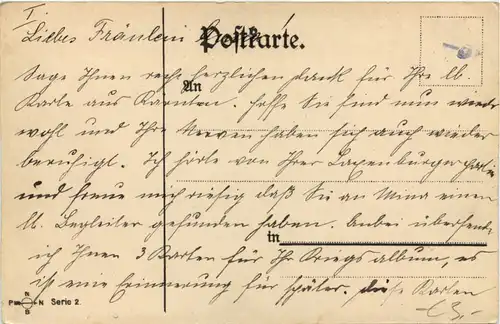 I.
Liebes Fräulein
Postkarte.
Sage Ihnen recht herzlichen Dank für Ihre lb.
An
Karte aus Kärnten. Hoffe Sie sind nun wieder
wohl und Ihre Nerven haben sich auch wieder
beruhigt. Ich hörte von Ihrer Laxenburger
und freue mich riesig daß Sie an Mina einen
lb. Begleiter gefunden haben. Anbei übersende
in
ich Ihnen 3 Karten für Ihr Kriegsalbum, es
ist eine Erinnerung für später. Diese Karten
Serie 2.